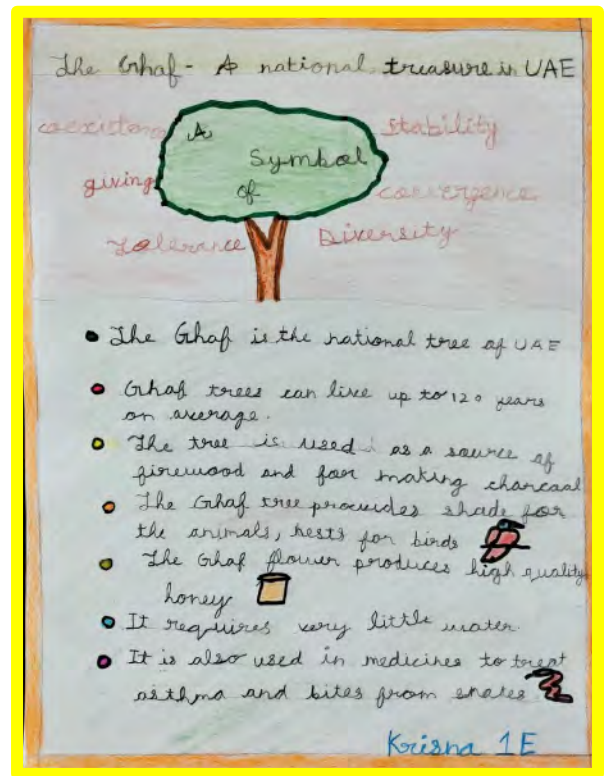 The Ghaf - A national treasure in UAE
coexistenc A stability
Symbol
giving of convergence
Tolerance Diversity
The Ghaf is the national tree of UAE
Ghaf trees can live up to 120 years
on average.
The tree is used as a source of
firewood and for making charcoal
The Ghaf tree provides shade for
the animals, nests for birds
The Ghaf flower produces high quality
honey
It requires very little water.
It is also used in medicines to treat
asthma and bites from snakes
Krisna 1E